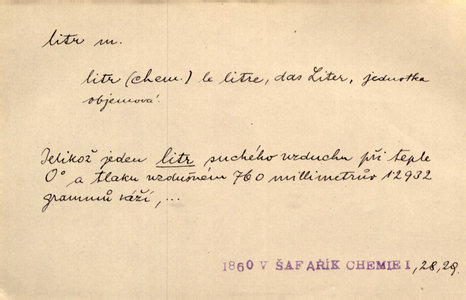 litr m.
litr (chem.) le litre, das Liter, jednotka
objemová.
Jelikož jeden litr suchého vzduchu při teple
0° a tlaku vzdušném 760 millimetrův 12932
grammů váží, ...
1860 V ŠAFAŘÍK CHEMIE I, 28, 29.